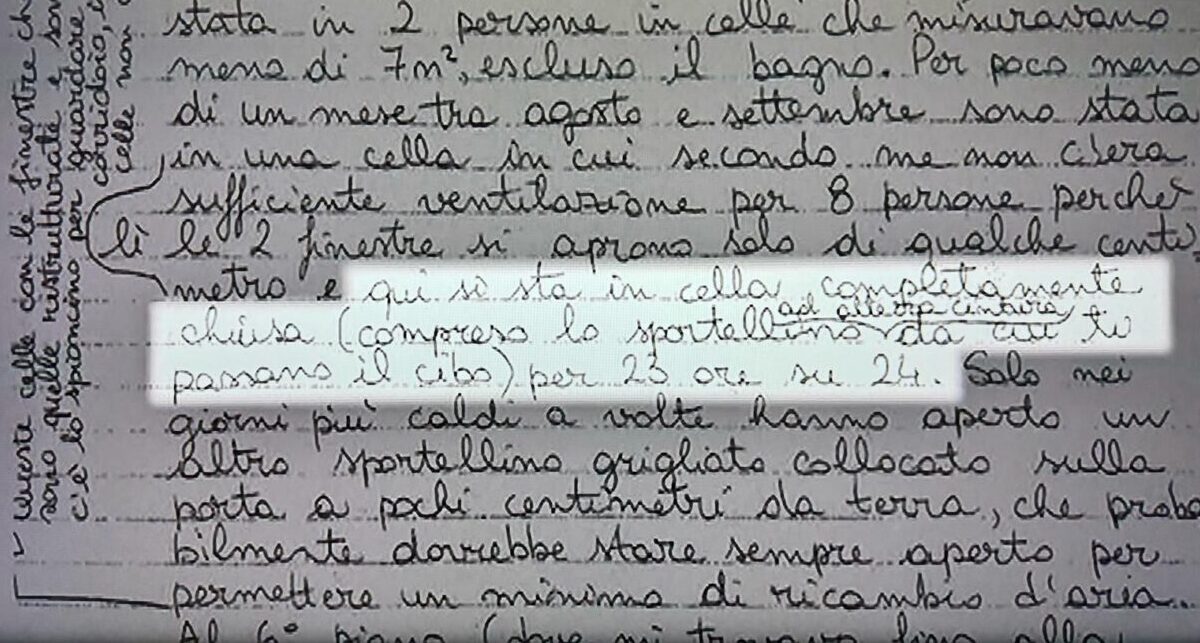 stata in 2 persone in celle che misuravano
meno di 7m², escluso il bagno. Per poco meno
di un mese tra agosto e settembre sono stata
in una cella in cui secondo me non c'era
sufficiente ventilazione per 8 persone perché
lì le 2 finestre si aprono solo di qualche centi
metro e qui si sta in cella completamente
ad altezza cintura
chiusa (compreso lo sportellino da cui ti
passano il cibo) per 23 ore su 24. Solo nei
giorni più caldi a volte hanno aperto un
altro sportellino grigliato collocato sulla
porta a pochi centimetri da terra, che proba
bilmente dovrebbe stare sempre aperto per
permettere un minimo di ricambio d'aria.
Al 6° piano (dove mi trovavo fino alla
queste celle con le finestre ch
sono quelle ristrutturate e son
c'è lo spioncino per guardare
corridoio,
celle non